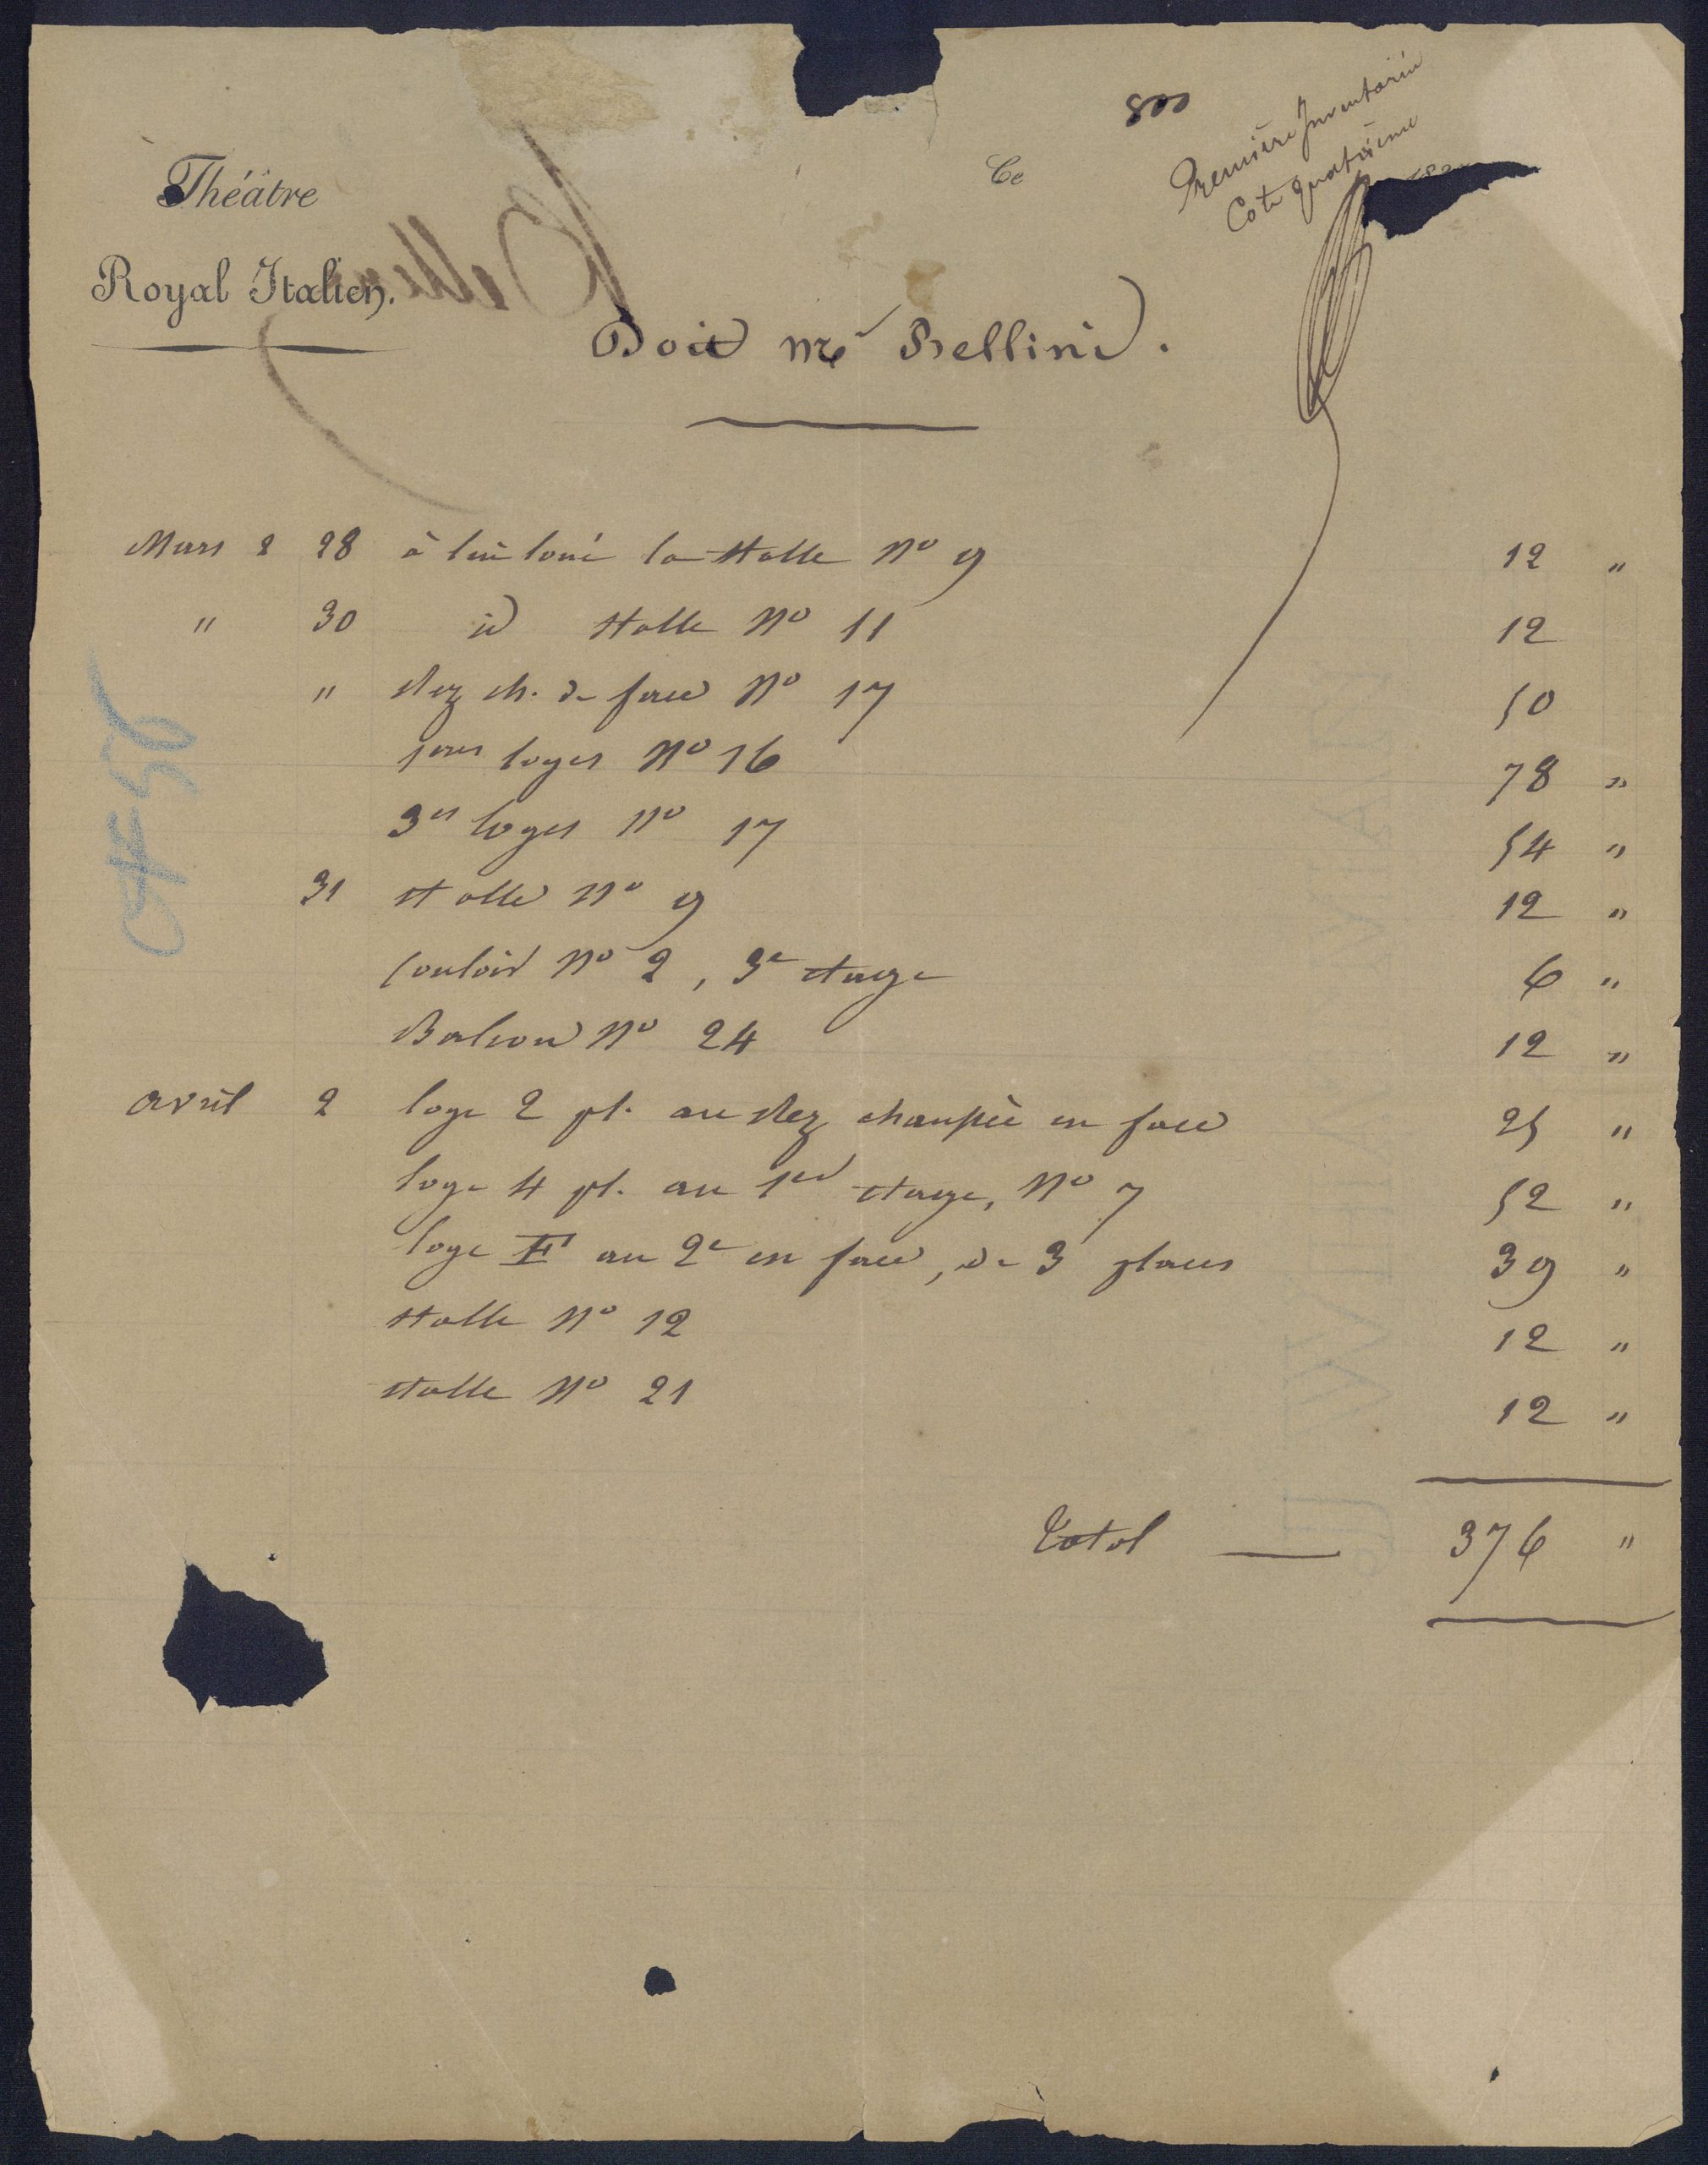 800
Première Inventorié
Cote quatrième
Théâtre
Royal Italien.
Ce
Doit Mr Bellini.
Mars 28 à lui loué la stalle No 9 12 "
" 30 id stalle No 11 12
" Rez ch. de face No 17 50
1eres loges No 16 78 "
3es loges No 17 54 "
31 stalle No 9 12 "
Couloir No 2, 3e étage 6 "
Balcon No 24 12 "
avril 2 loge 2 pl. au Rez chaussée en face 25 "
loge 4 pl. au 1er étage, No 7 52 "
loge F au 2e en face, de 3 places 39 "
stalle No 12 12 "
stalle No 21 12 "
Total — 376 "